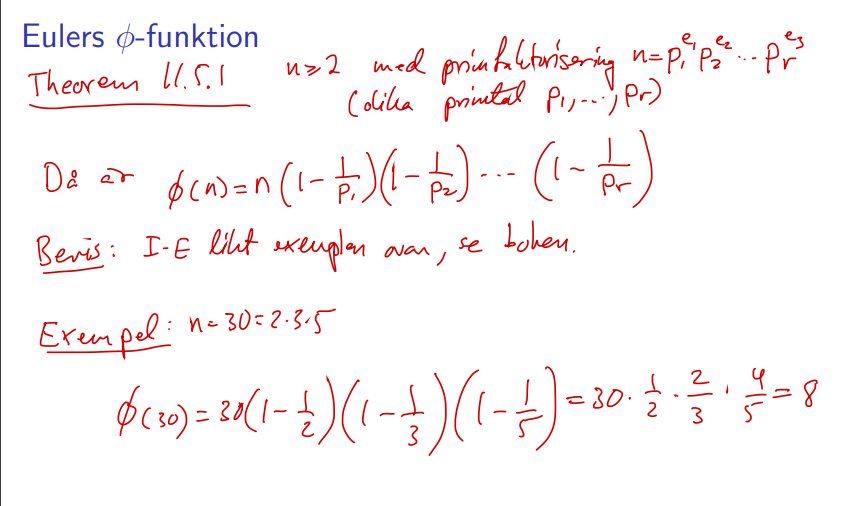 Eulers ϕ-funktion
Theorem 11.5.1 n≥2 med primfaktorisering n=p₁^e₁ p₂^e₂ ... pᵣ^e₃
(olika primtal p₁,...,pᵣ)
Då är ϕ(n)=n(1-1/p₁)(1-1/p₂)...(1-1/pᵣ)
Bevis: I-E likt exemplen ovan, se boken.
Exempel: n=30=2·3·5
ϕ(30)=30(1-1/2)(1-1/3)(1-1/5)=30·1/2·2/3·4/5=8